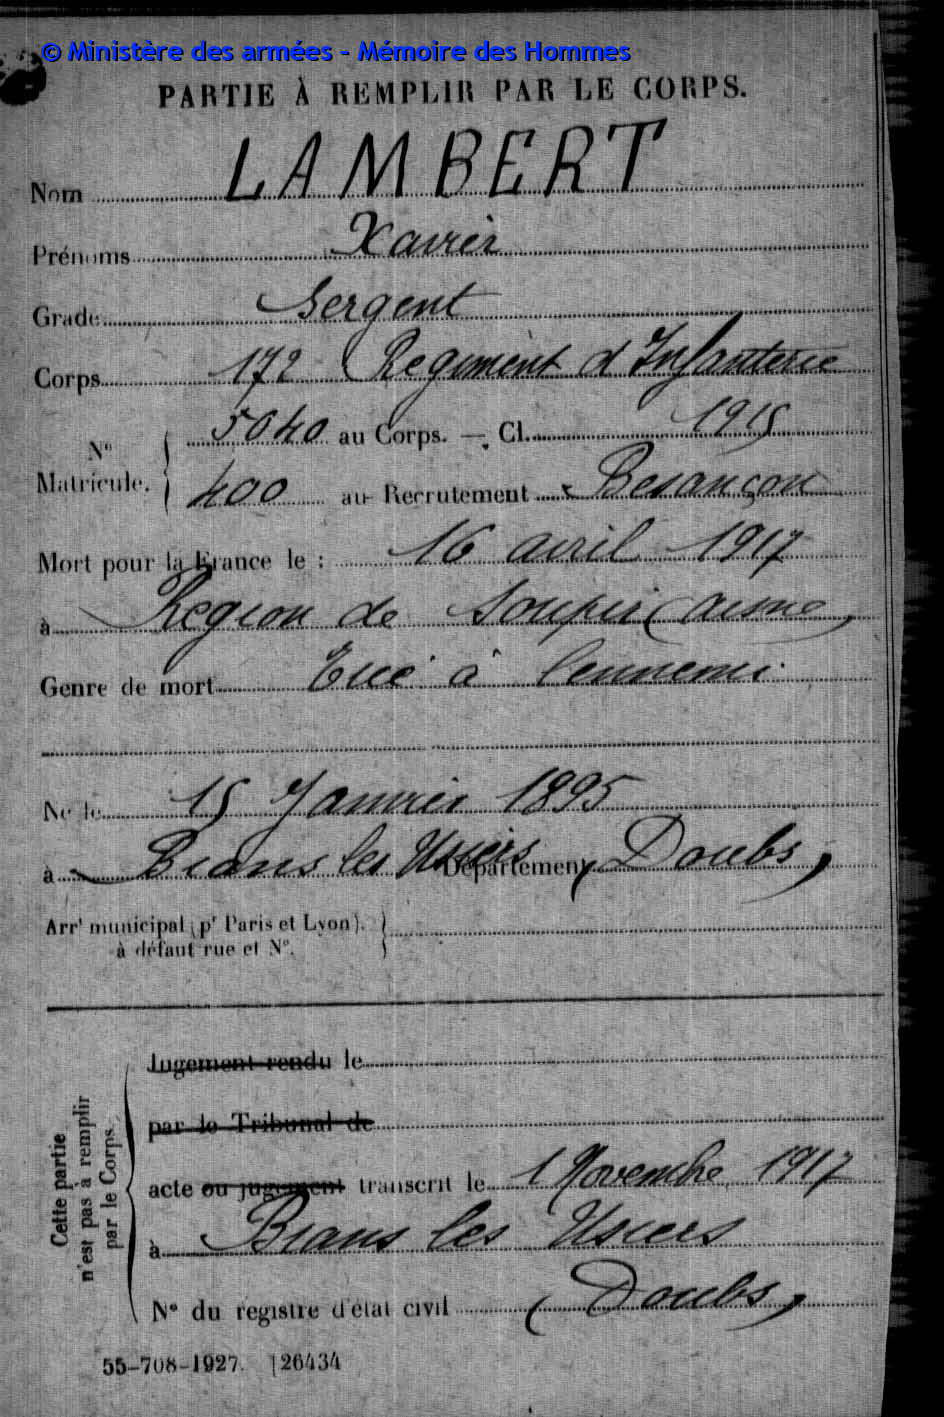 © Ministère des armées - Mémoire des Hommes
PARTIE À REMPLIR PAR LE CORPS.
Nom LAMBERT
Prénoms Xavier
Grade Sergent
Corps 172 Regiment d'Infanterie
N° Matricule. { 5040 au Corps. — Cl. 1915
400 au Recrutement Besançon
Mort pour la France le : 16 avril 1917
à Région de Soupir (aisne)
Genre de mort Tué à l'ennemi
Né le 15 Janvier 1895
à Bians les Usiers Département (Doubs)
Arrt municipal (pr Paris et Lyon),
à défaut rue et N°.
Cette partie
n'est pas à remplir
par le Corps.
Jugement rendu le
par le Tribunal de
acte ou jugement transcrit le 1 Novembre 1917
à Bians les Usiers
N° du registre d'état civil (Doubs)
55-708-1927. [26434